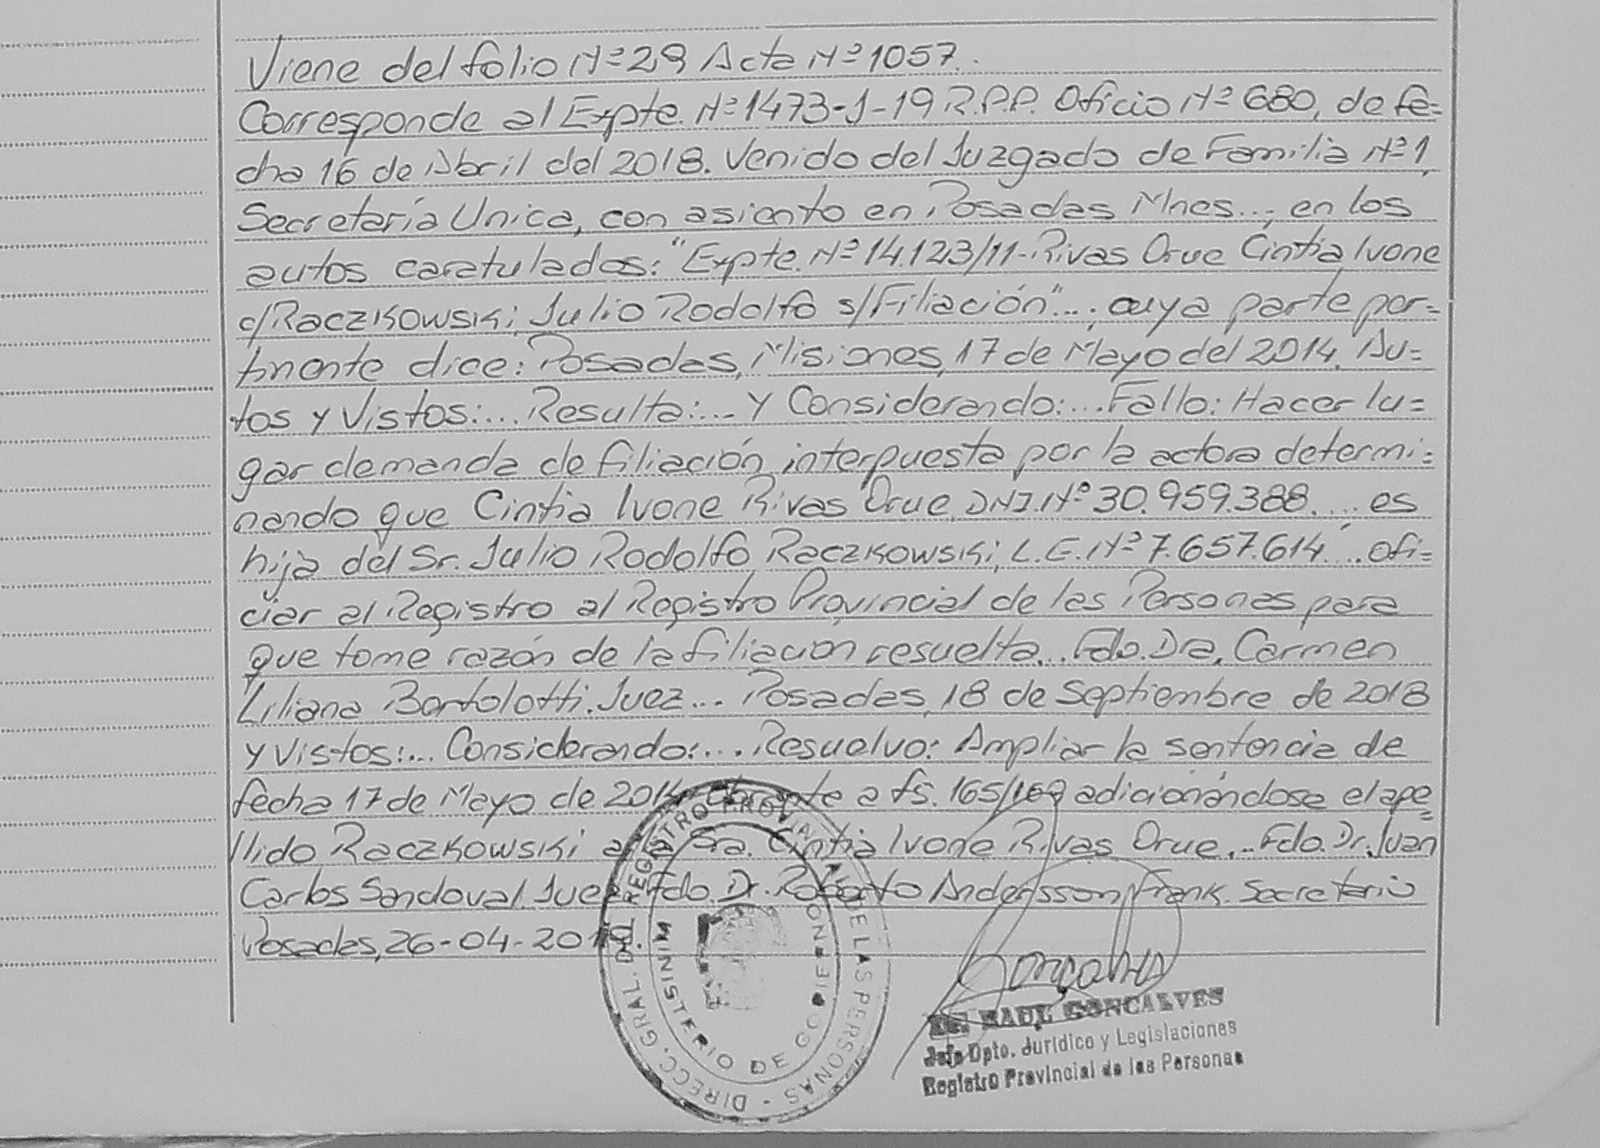 Viene del folio Nº 29 Acta Nº 1057.
Corresponde al Expte. Nº 1473-J-19 R.P.P. Oficio Nº 680, de fe=
cha 16 de Abril del 2018. Venido del Juzgado de Familia Nº 1,
Secretaría Unica, con asiento en Posadas Mnes...; en los
autos caratulados: "Expte. Nº 14.123/11-Rivas Orue Cintia Ivone
c/Raczkowski; Julio Rodolfo s/Filiación"...; cuya parte per=
tinente dice: Posadas, Misiones, 17 de Mayo del 2014. Au=
tos y Vistos:... Resulta:... Y Considerando:... Fallo: Hacer lu=
gar demanda de filiación interpuesta por la actora determi=
nando que Cintia Ivone Rivas Orue, DNI. Nº 30.959.388.... es
hija del Sr. Julio Rodolfo Raczkowski, L.E. Nº 7.657.614... ofi=
ciar al Registro al Registro Provincial de las Personas para
que tome razón de la filiación resuelta... Fdo. Dra. Carmen
Liliana Bortolotti. Juez... Posadas, 18 de Septiembre de 2018
y Vistos:... Considerando:... Resuelvo: Ampliar la sentencia de
fecha 17 de Mayo de 2014 obrante a fs. 165/169 adicionándose el ape=
llido Raczkowski a la Sra. Cintia Ivone Rivas Orue... Fdo. Dr. Juan
Carlos Sandoval. Juez. Fdo. Dr. Roberto Andersson Frank. Secretario
Posadas, 26-04-2019.
DIRECC. GRAL. DEL REGISTRO PROVINCIAL DE LAS PERSONAS -
MINISTERIO DE GOBIERNO
Goncalves
Dr. RAUL GONCALVES
Jefe Dpto. Jurídico y Legislaciones
Registro Provincial de las Personas